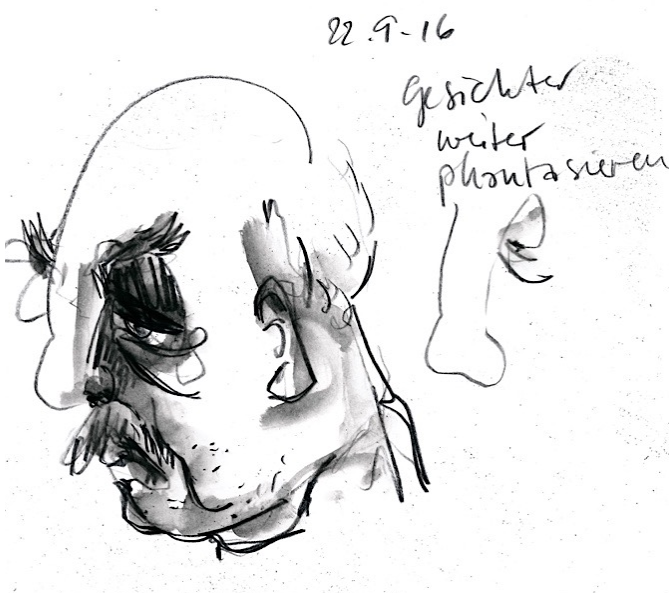 22.9-16
Gesichter
weiter
phantasieren